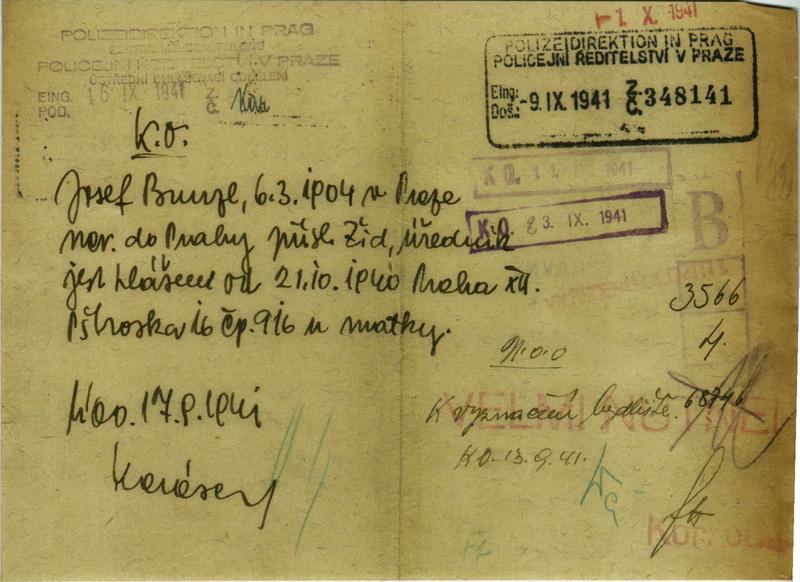 1 X. 1941
POLIZEIDIREKTION IN PRAG
POLICEJNÍ ŘEDITELSTVÍ V PRAZE
EING. 16 IX 1941 Z.
POD. Č.
POLIZEIDIREKTION IN PRAG
POLICEJNÍ ŘEDITELSTVÍ V PRAZE
Eing.: -9. IX. 1941 Z. 348141
Doš.: Č.
K.O.
K.O. 1941
K.O. 23. IX. 1941
B
Josef Bunzl, 6.3.1904 v Praze
do Prahy přísl. Žid, úředník
jest hlášen od 21.10.1940 Praha XII.
Pštroska 16 čp. 916 u matky.
3566
4.
N.o.o
K vyznačení bydliště. 68746
VELMI NUTNÉ!
K.O. 13.9.41.
17.9.1941